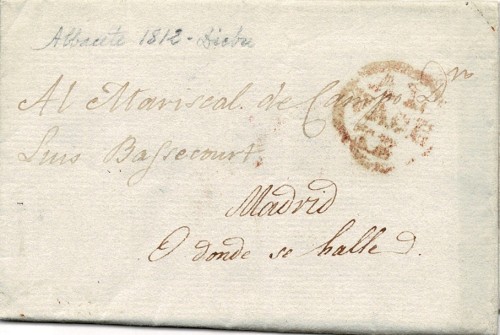 Albacete 1812 - Dicbre
Al Mariscal de Campo Dn
Luis Bassecourt
Madrid
O donde se halle